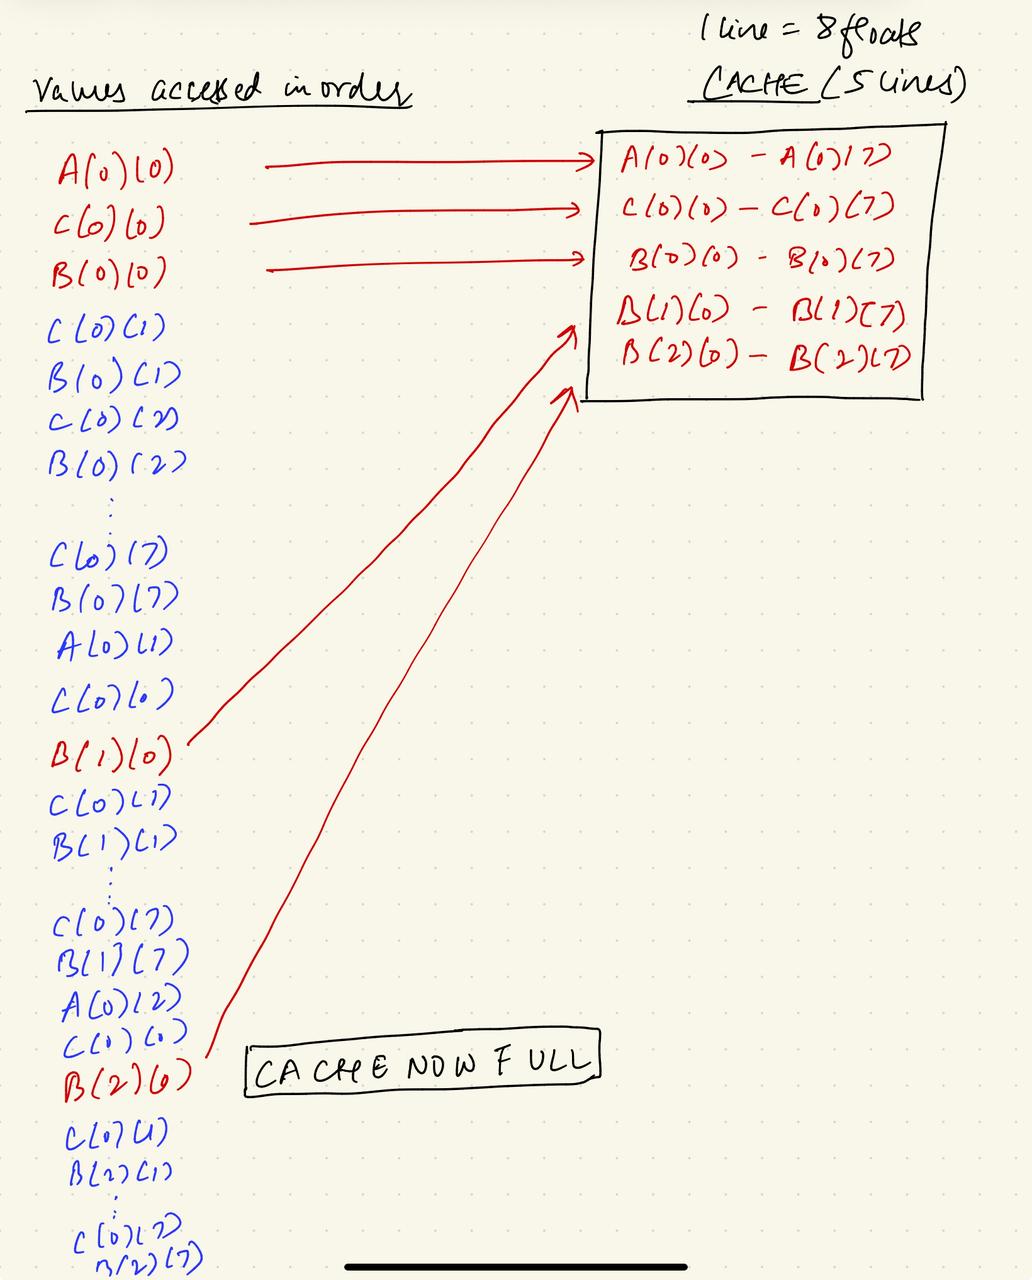 1 line = 8 floats
CACHE (5 lines)
Values accessed in order
A(0)(0)
C(0)(0)
B(0)(0)
C(0)(1)
B(0)(1)
C(0)(2)
B(0)(2)
⋮
C(0)(7)
B(0)(7)
A(0)(1)
C(0)(0)
B(1)(0)
C(0)(1)
B(1)(1)
⋮
C(0)(7)
B(1)(7)
A(0)(2)
C(0)(0)
B(2)(0)
C(0)(1)
B(2)(1)
⋮
C(0)(7)
B(2)(7)
A(0)(0) - A(0)(7)
C(0)(0) - C(0)(7)
B(0)(0) - B(0)(7)
B(1)(0) - B(1)(7)
B(2)(0) - B(2)(7)
CACHE NOW FULL